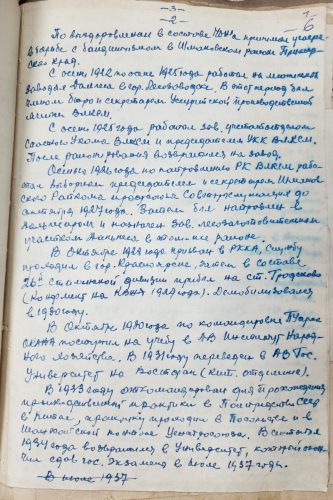 - 3 -
- 2 -
6
По выздоровлении в составе ЧОНа принимал участие
в борьбе с бандитизмом в Шмаковском районе Примор-
ского края.
С осени 1922 по осень 1925 года работал на лесопильном
заводе в гор. Лесозаводске. В этот период был
членом бюро и секретарем Уссурийской производственной
ячейки ВЛКСМ.
С осени 1925 года работал зав.
Спасского Укома ВЛКСМ и председателем УКК ВЛКСМ.
После районирования возвратился на завод.
Осенью 1926 года по направлению РК ВЛКСМ рабо-
тал выборным председателем и секретарем Шмаков-
ского Райкома профсоюза Совторгслужащих до
октября 1927 года. Затем был направлен в
и назначен зав. лесозаготовительным
участком в том же районе.
В Октябре 1928 года призван в РККА, службу
проходил в гор. Красноярске, затем в составе
26ой Сталинской дивизии прибыл на ст. Гродеково
(Конфликт на КВЖД 1929 года). Демобилизовался
в 1930 году.
В Октябре 1930 года по командировке ПУарма
ОКДВА поступил на учебу в ДВ Институт Народ-
ного Хозяйства. В 1931 году переведен в ДВ Гос.
Университет на Востфак (Кит. отделение).
В 1933 году откомандирован для прохождения
производственной практики в Полпредство СССР
в Китае, практику проходил в Посольстве и в
Шанхайской конторе Центросоюза. В
1934 года возвратился в Университет, который окон-
чил сдав гос. экзамены в июле 1937 года.
В июле 1937